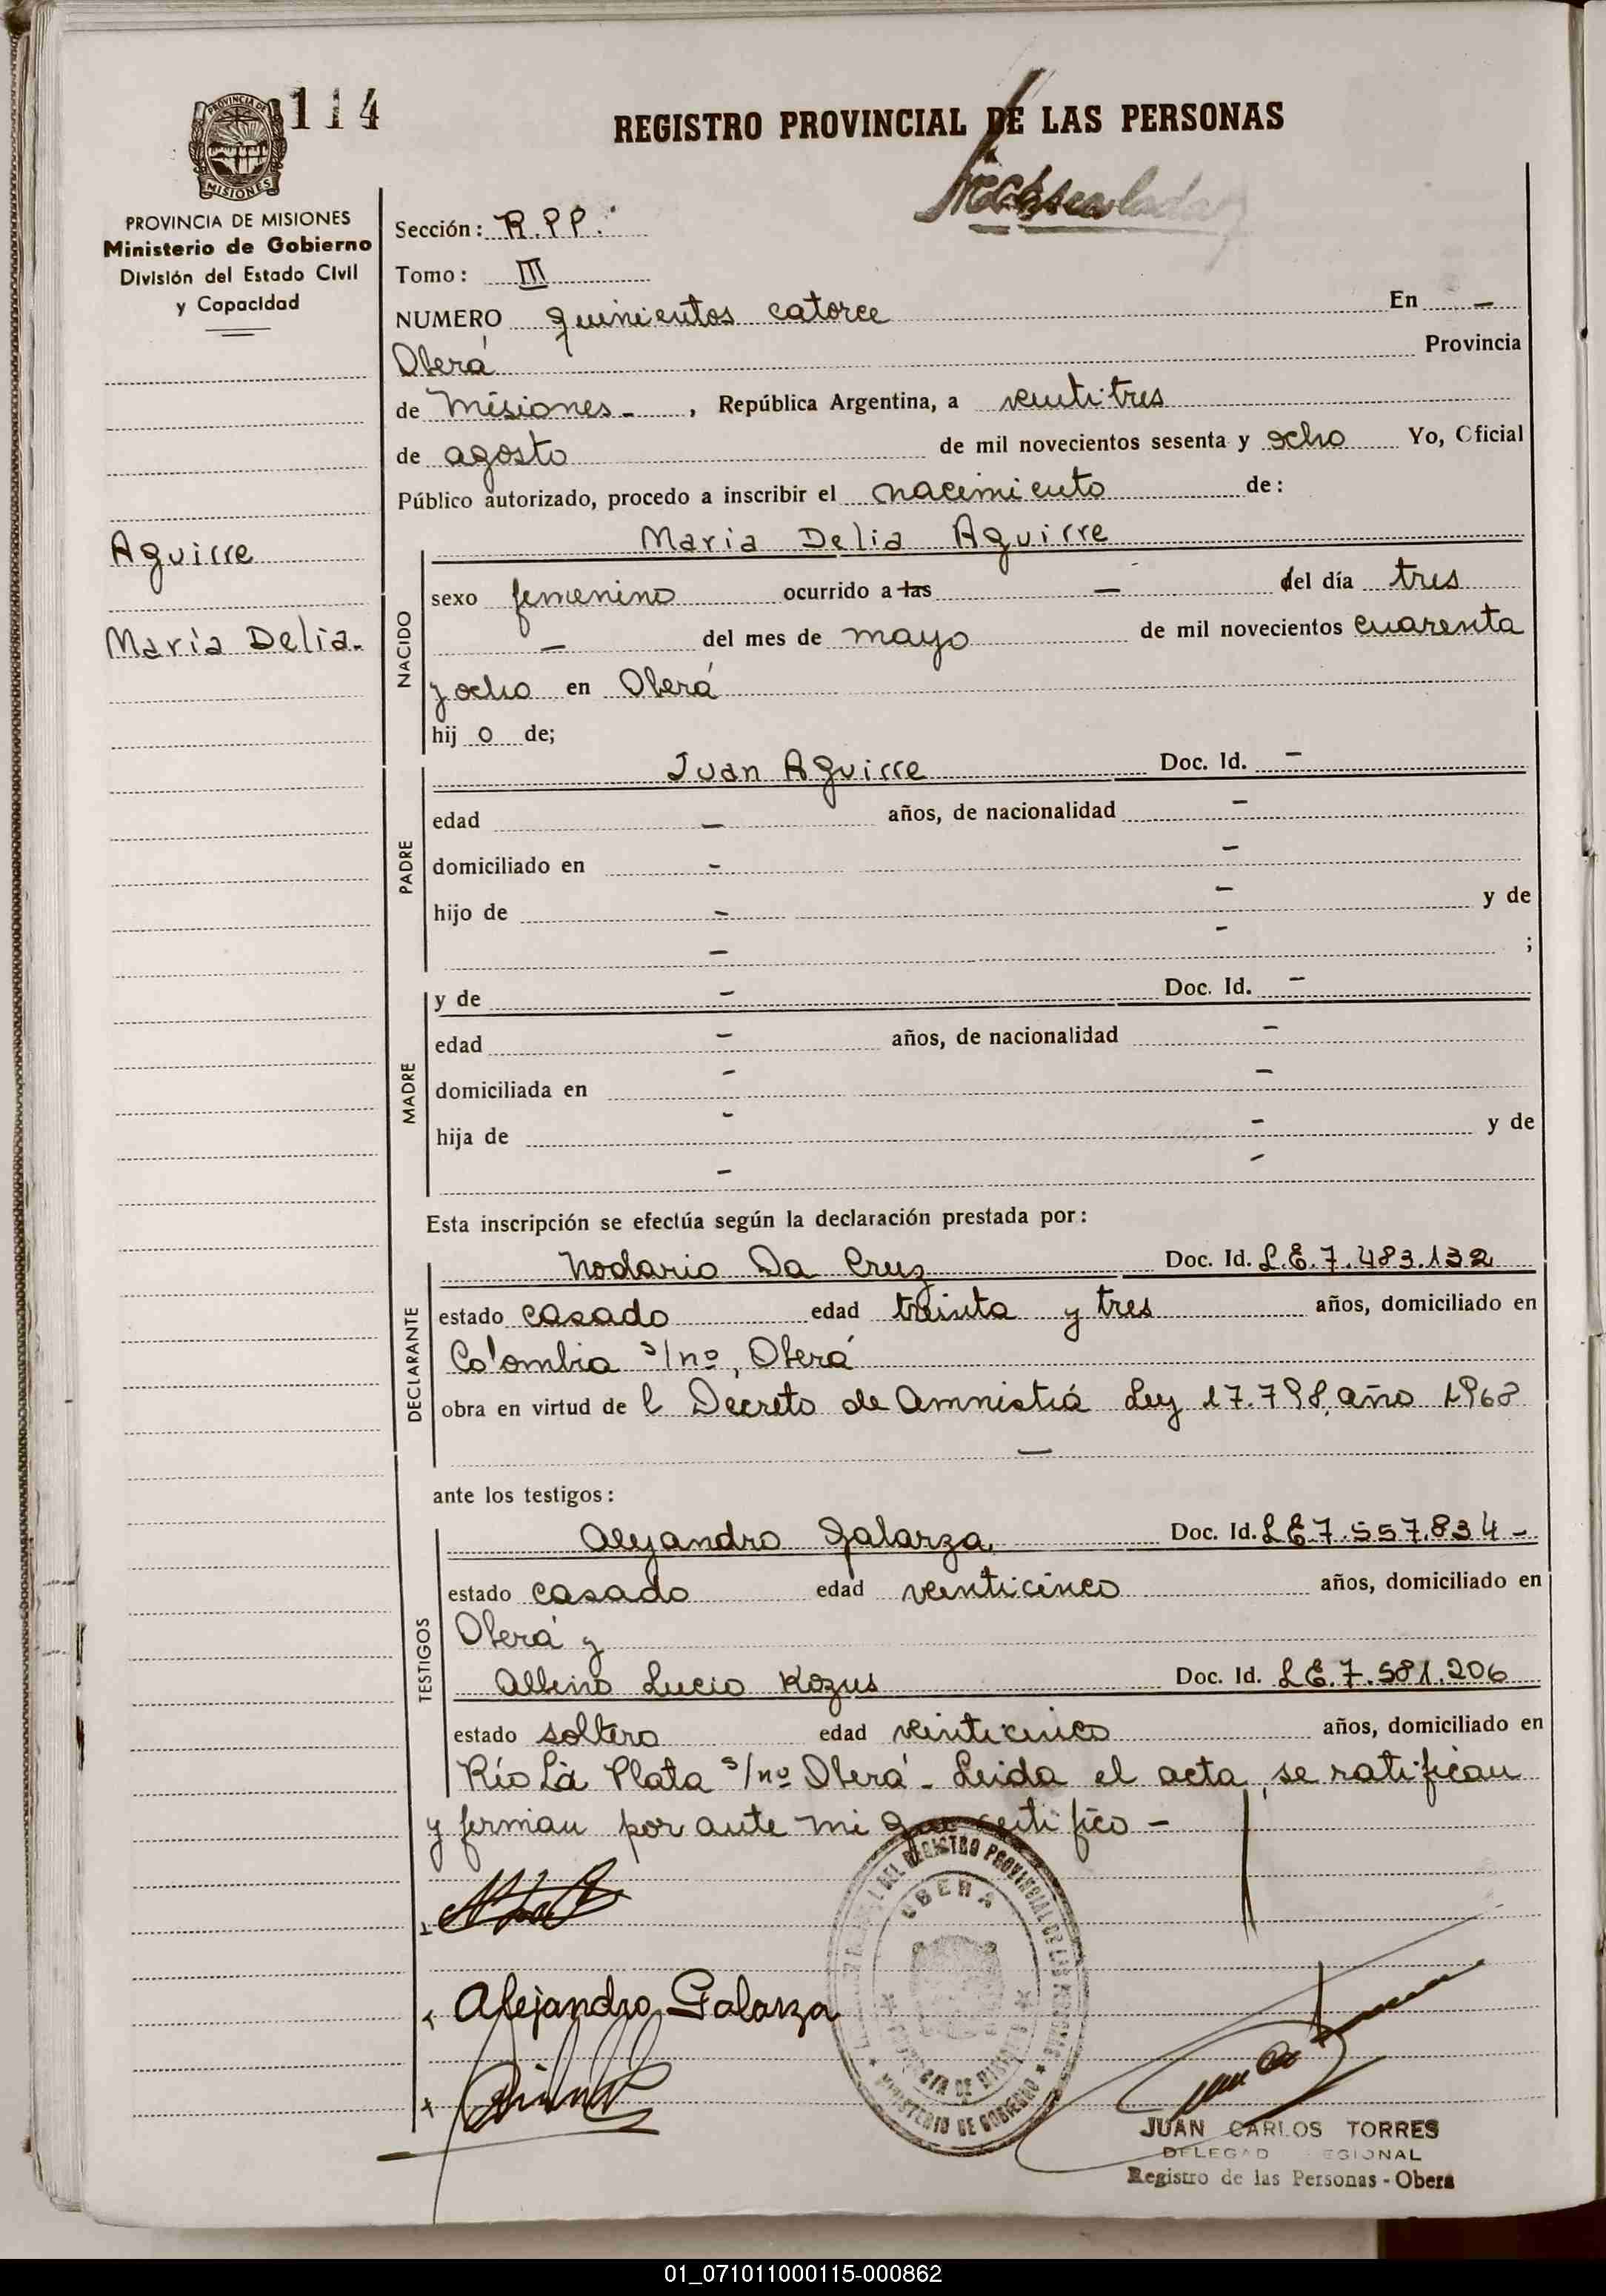 114
REGISTRO PROVINCIAL DE LAS PERSONAS
PROVINCIA DE MISIONES
PROVINCIA DE MISIONES
Ministerio de Gobierno
División del Estado Civil
y Capacidad
Sección: R.P.P.
Tomo: III
NUMERO quinientos catorce En –
Oberá Provincia
de Misiones - , República Argentina, a veintitres
de agosto de mil novecientos sesenta y ocho Yo, Oficial
Público autorizado, procedo a inscribir el nacimiento de:
Aguirre
María Delia.
NACIDO
Maria Delia Aguirre
sexo femenino ocurrido a las – del día tres
– del mes de mayo de mil novecientos cuarenta
y ocho en Oberá
hij o de;
PADRE
Juan Aguirre Doc. Id. –
edad – años, de nacionalidad –
domiciliado en – –
hijo de – – y de
– – ;
MADRE
y de – Doc. Id. –
edad – años, de nacionalidad –
domiciliada en – –
hija de – – y de
– –
Esta inscripción se efectúa según la declaración prestada por:
DECLARANTE
Nodario Da Cruz Doc. Id. L.E. 7.483.132
estado casado edad treinta y tres años, domiciliado en
Colombia s/nº, Oberá
obra en virtud de l Decreto de Amnistiá Ley 17.798, año 1968
–
ante los testigos:
TESTIGOS
Alejandro Galarza Doc. Id. L E 7.557.834 -
estado casado edad veinticinco años, domiciliado en
Oberá y
Albino Lucio Kozus Doc. Id. L E. 7.581.206
estado soltero edad veinticinco años, domiciliado en
Río La Plata s/nº Oberá - Leida el acta, se ratifican
y firman por ante mi que certifico -
Alejandro Galarza
DEL REGISTRO PROVINCIAL DE LAS PERSONAS
OBERA
PROVINCIA DE MISIONES
MINISTERIO DE GOBIERNO
JUAN CARLOS TORRES
DELEGAD EGIONAL
Registro de las Personas - Obera
01_071011000115-000862